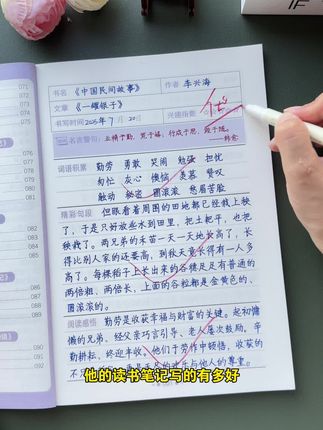 IF
书名 《中国民间故事》 作者 李兴海
文章 《一罐银子》
书写时间 2025年7月20日 兴趣指数
优
名言警句: 业精于勤,荒于嬉;行成于思,毁于随。
——韩愈
词语积累 勤劳 勇敢 笑闹 勉强 担忧
匆忙 灰心 懊恼 羡慕 赞叹
触动 秘密 圆滚滚 愁眉苦脸
精彩句段 但眼看着周围的田地都已经栽上秧
了,于是只好放些水到田里,把土耙平,也把
秧栽了。两兄弟的禾苗一天一天地长高了,长
得比别人家的还要高,到秋天竟长得有一人多
高了。每棵稻子上长出来的谷穗足足有普通的
两倍粗,两倍长,上面的谷粒都是金黄色的、
圆滚滚的。
阅读感悟 勤劳是收获幸福与财富的关键。起初慵
懒的兄弟,经父亲巧言引导、老人屡次鼓励,辛
勤耕耘,终迎丰收。他们于劳作中顿悟,收获的
不只
与他人的尊重。
他的读书笔记写的有多好
071
072
073
074
075
076
077
078
079
080
081
082
083
084
089
090
091
092
093
094